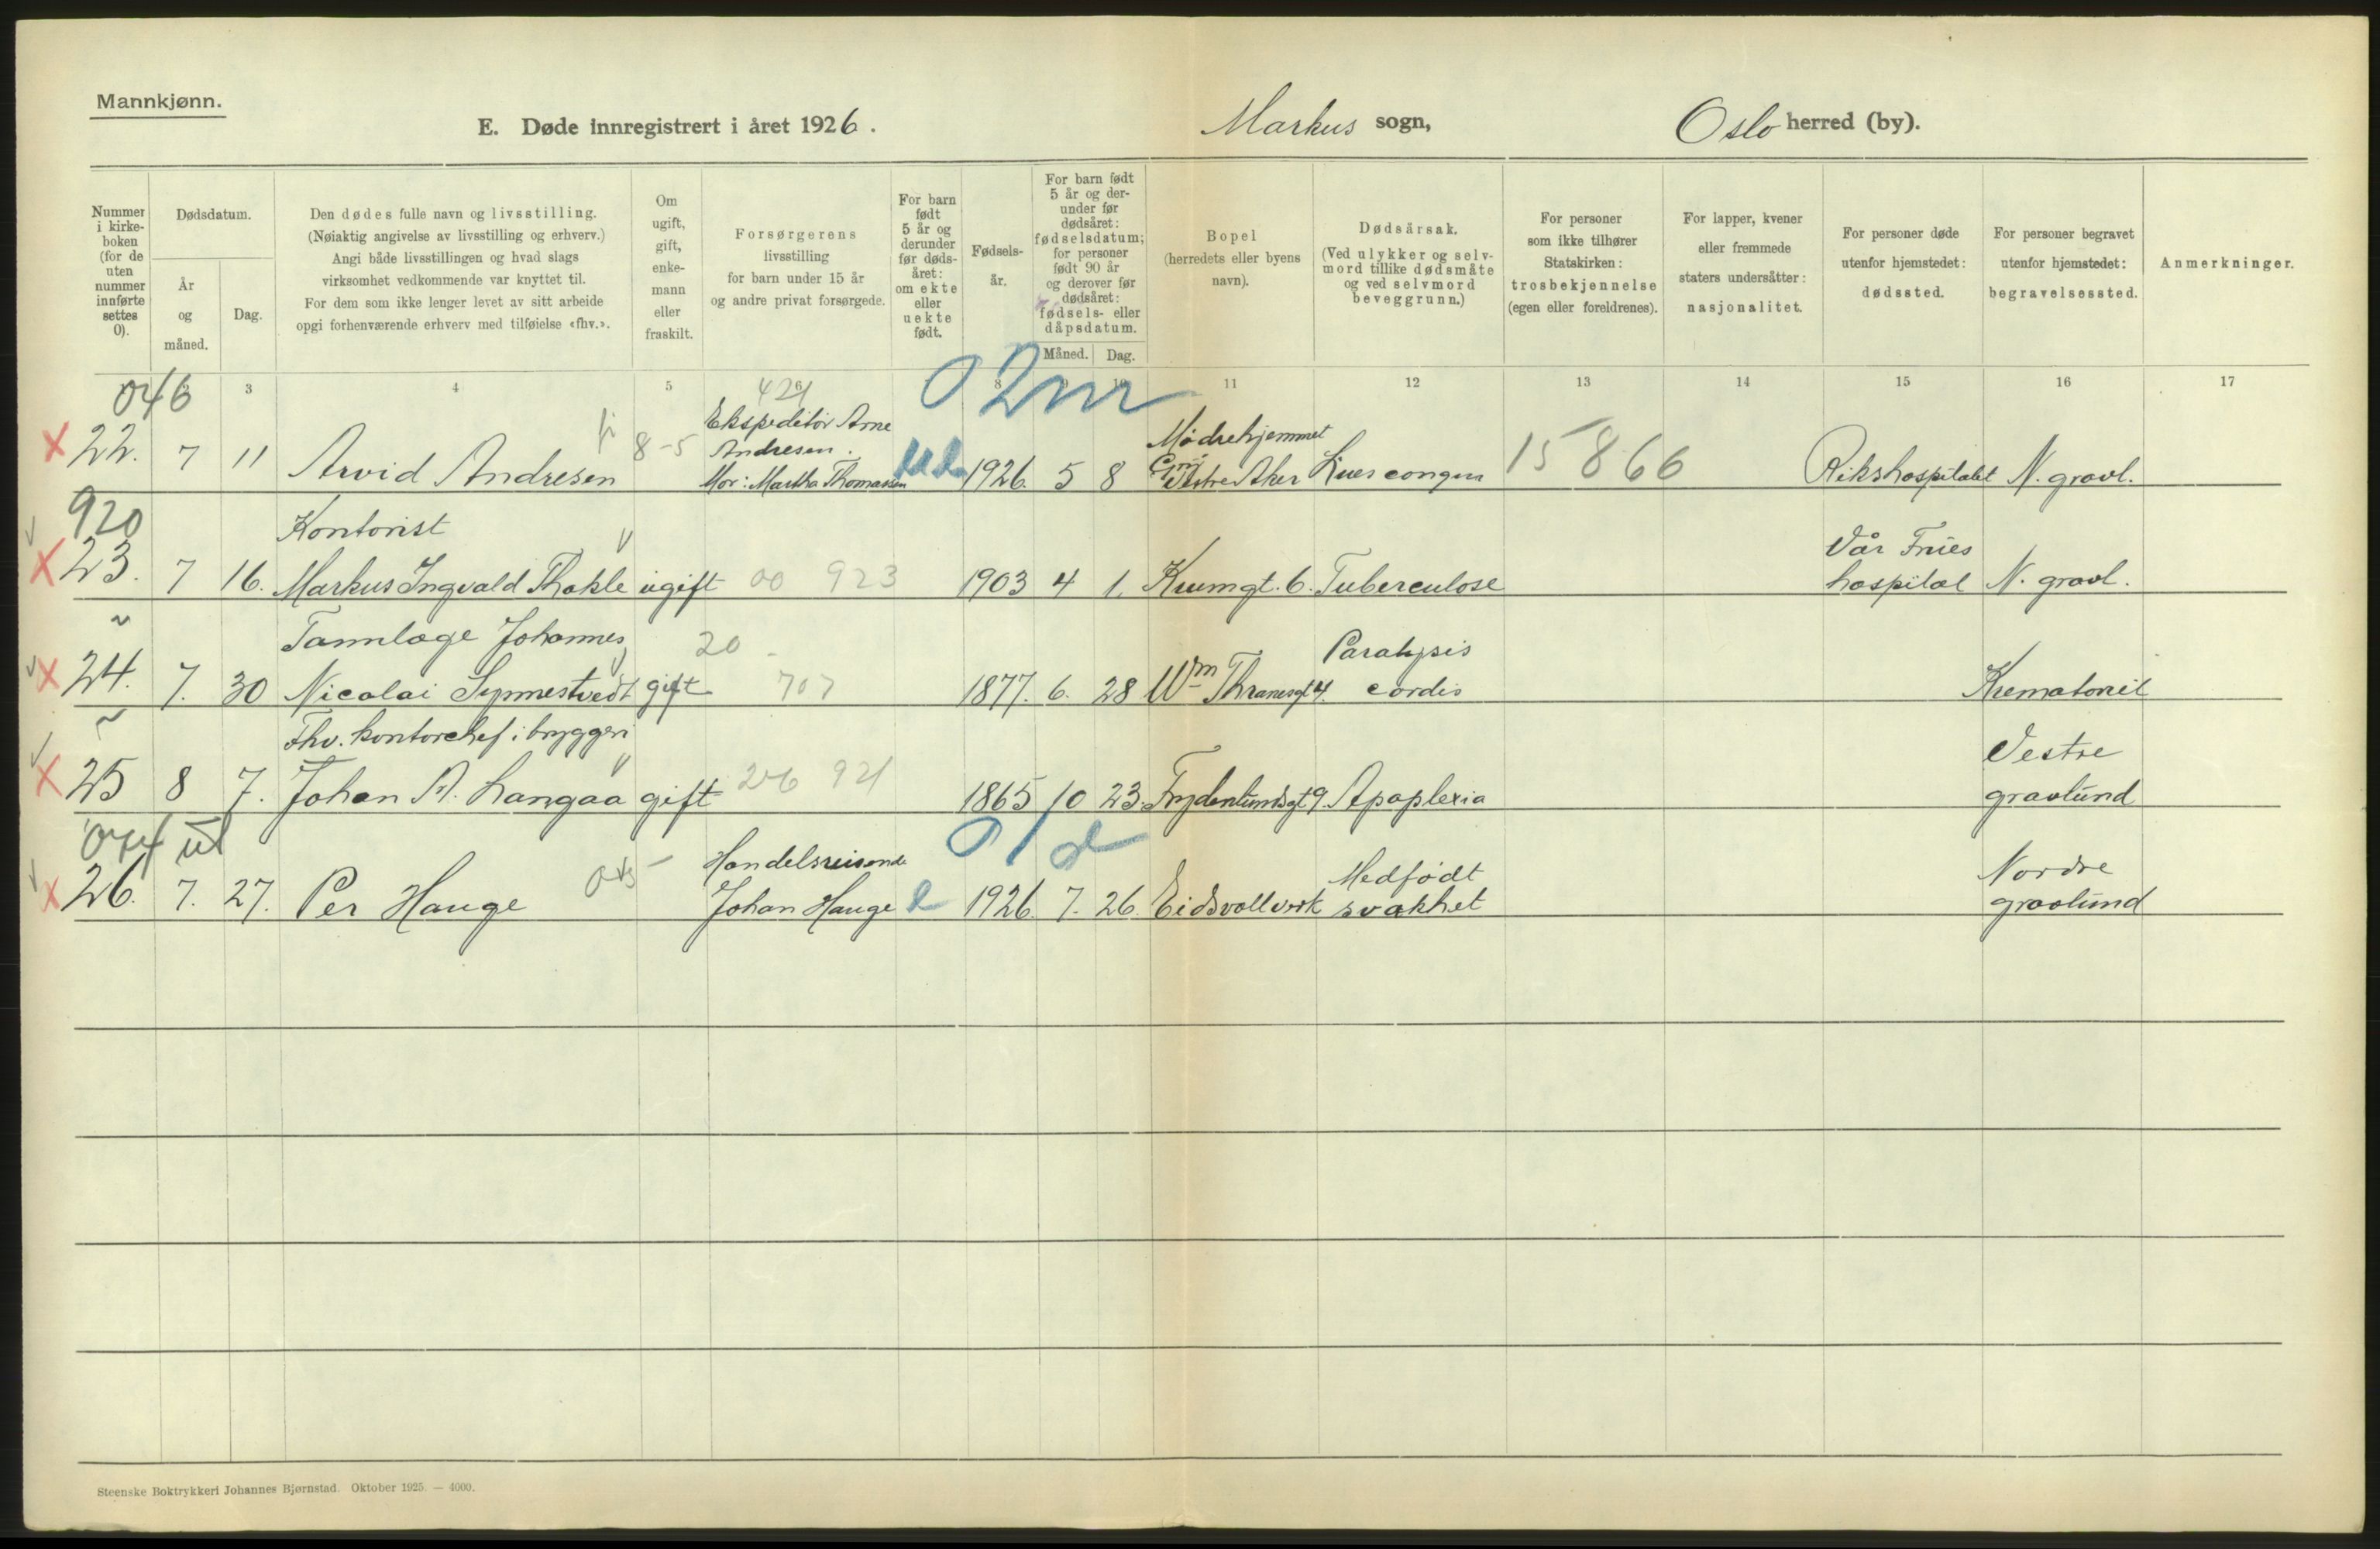 Mannkjønn.
E. Døde innregistrert i året 1926. Markus sogn, Oslo herred (by).
Nummer i kirke-boken (for de uten nummer innførte settes 0).
Dødsdatum.
År og måned.
Dag.
Den dødes fulle navn og livsstilling.
(Nøiaktig angivelse av livsstilling og erhverv.)
Angi både livsstillingen og hvad slags
virksomhet vedkommende var knyttet til.
For dem som ikke lenger levet av sitt arbeide
opgi forhenværende erhverv med tilføielse «fhv.».
Om ugift, gift, enke-mann eller fraskilt.
Forsørgerens
livsstilling
for barn under 15 år
og andre privat forsørgede.
For barn født 5 år og derunder før døds-året: om ekte eller uekte født.
Fødsels-år.
For barn født 5 år og der-under før dødsåret: fødselsdatum; for personer født 90 år og derover før dødsåret: fødsels- eller dåpsdatum.
Måned. Dag.
Bopel
(herredets eller byens
navn).
Dødsårsak.
(Ved ulykker og selv-
mord tillike dødsmåte
og ved selvmord
beveggrunn.)
For personer
som ikke tilhører
Statskirken:
trosbekjennelse
(egen eller foreldrenes).
For lapper, kvener
eller fremmede
staters undersåtter:
nasjonalitet.
For personer døde
utenfor hjemstedet:
dødssted.
For personer begravet
utenfor hjemstedet:
begravelsessted.
Anmerkninger.
3 4 5 8 11 12 13 14 15 16 17
046 421 0 2m
Ekspeditør Arne
Andresen. Mødrehjemmet
22. 7 11 Arvid Andresen 8-5 Mor: Martha Thomassen 1926. 5 8 Østre Aker Lues congen 15866 Rikshospitalet N. gravl.
920
Kontorist Vår Frues
23. 7 16. Markus Ingvald Thokle ugift 00 923 1903 4 1. Krumgt. 6. Tuberculose hospital N. gravl.
Tannlæge Johannes 20 Paralysis
24. 7. 30 Nicolai Synnestvedt gift 707 1877. 6. 28 Wm Thranesgt 4. cordis Krematoriet
Fhv. kontorchef i bryggeri Vestre
25 8 7. Johan A. Langaa gift 206 921 1865 10 23. Frydenlundsgt 9. Apoplexia gravlund
ut 0 1 d
Handelsreisende Medfødt Nordre
26. 7. 27. Per Hauge Johan Hauge 1926. 7. 26. Eidsvollverk svakhet gravlund
Steenske Boktrykkeri Johannes Bjørnstad. Oktober 1925. — 4000.